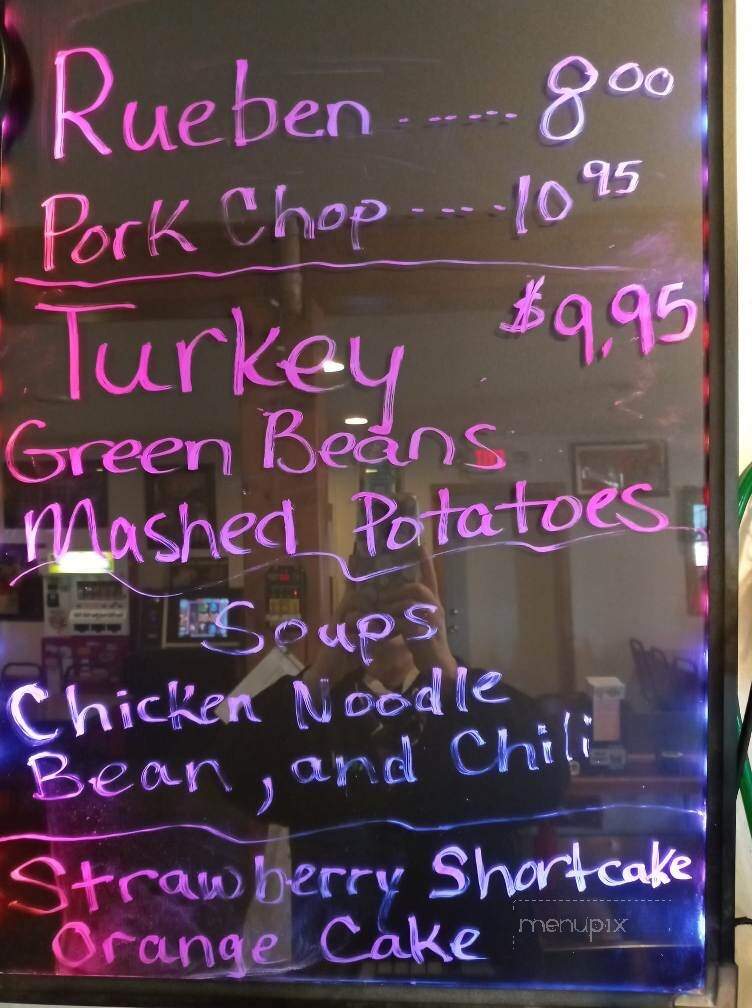 Rueben ------ 8 00
Pork Chop ----- 10 95
Turkey $9.95
Green Beans
Mashed Potatoes
Soups
Chicken Noodle
Bean, and Chili
Strawberry Shortcake
Orange Cake
menupix